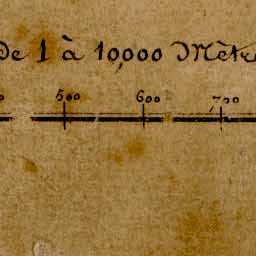 de 1 à 10,000 Mètre
500 600 700